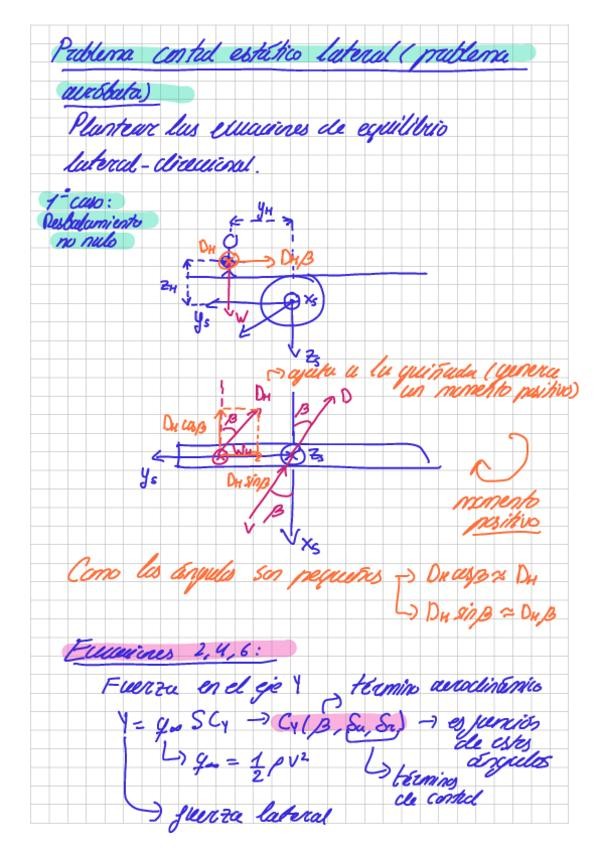 Problema control estático lateral (problema
acróbata)
Plantear las ecuaciones de equilibrio
lateral-direccional.
1º caso:
Resbalamiento
no nulo
yH
DH
DHβ
zH
W
ys
xs
zs
→ ayuda a la guiñada (genera
un momento positivo)
DH
D
DH cosβ
β
β
WH
zs
ys
DH sinβ
β
V
xs
momento
positivo
Como los ángulos son pequeños → DH cosβ ≈ DH
→ DH sinβ ≈ DHβ
Ecuaciones 2,4,6:
Fuerza en el eje Y
término aerodinámico
Y = q∞ S CY → CY (β, δa, δr) → es función
de estos
ángulos
→ q∞ = 1/2 ρV²
términos
de control
→ fuerza lateral